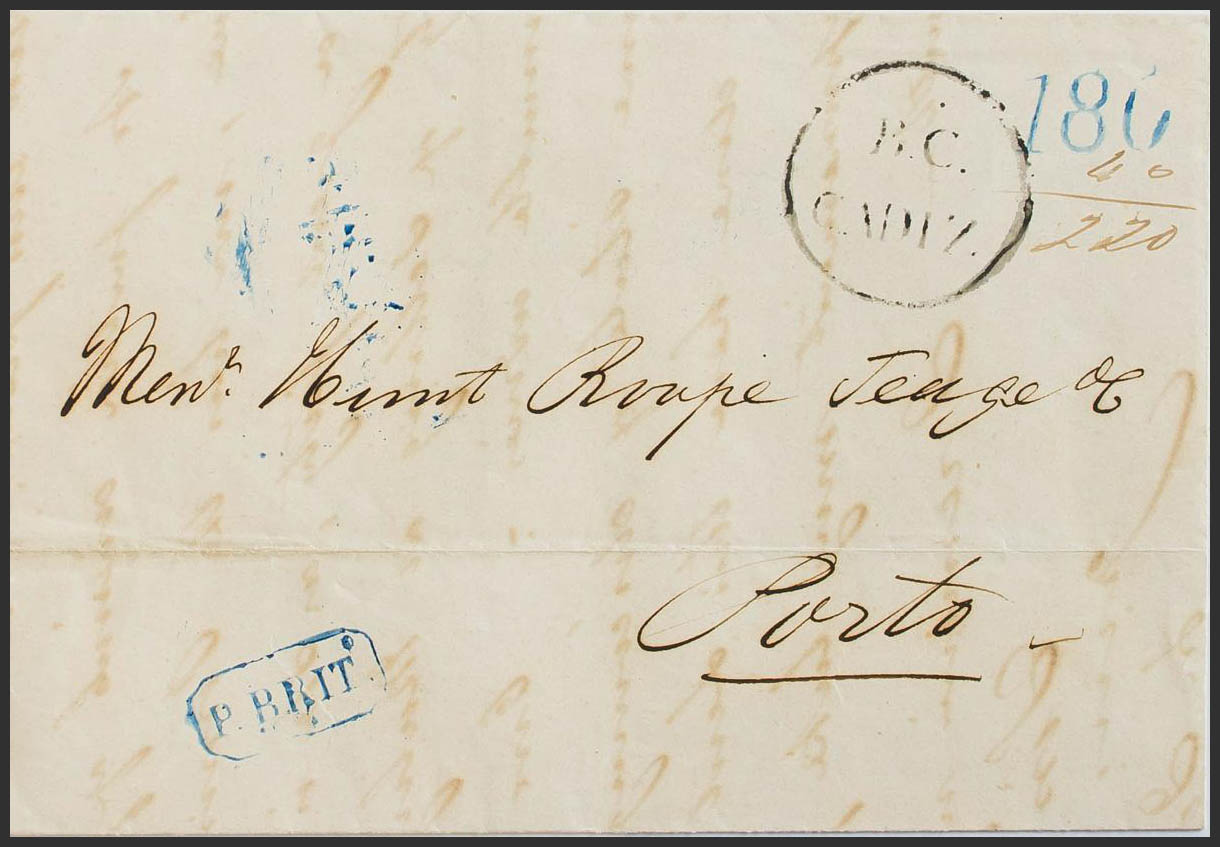 180
B.C.
CADIZ.
40
220
Mess.rs Hunt Roope Teage & C
Porto
P. BRIT.